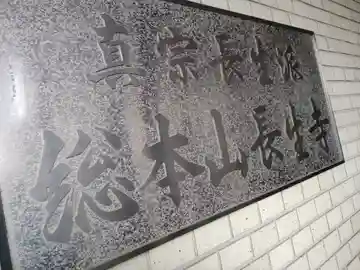 真宗長生派
総本山長生寺